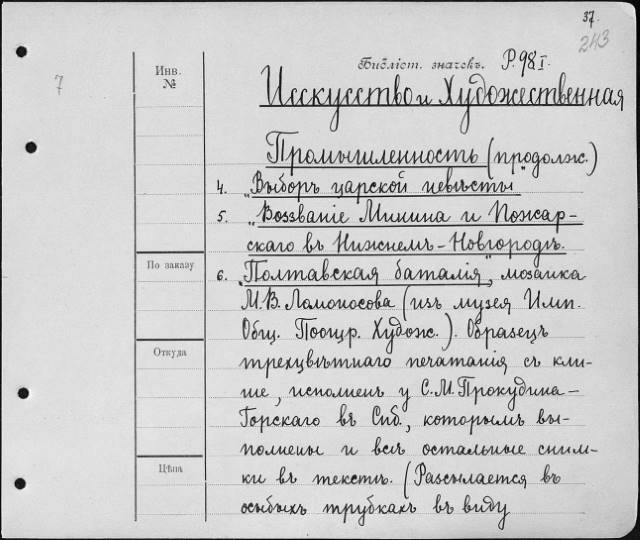 37.
243
7
Инв.
№
Библіот. значекъ. P.98 I.
Исскусство и Художественная
Промышленность (продолж.)
4. „Выборъ царской невѣсты"
5. „Воззваніе Минина и Пожар-
скаго въ Нижнемъ-Новгородѣ.
По заказу
6. „Полтавская баталія", мозаика
М.В. Ломоносова (изъ музея Имп.
Общ. Поощр. Худож.). Образецъ
Откуда
трехцвѣтнаго печатанія съ кли-
ше, исполненъ у С.М. Прокудина-
Горскаго въ Спб., которымъ вы-
полнены и всѣ остальные сним-
Цѣна
ки въ текстѣ. (Разсылается въ
особыхъ трубкахъ въ виду